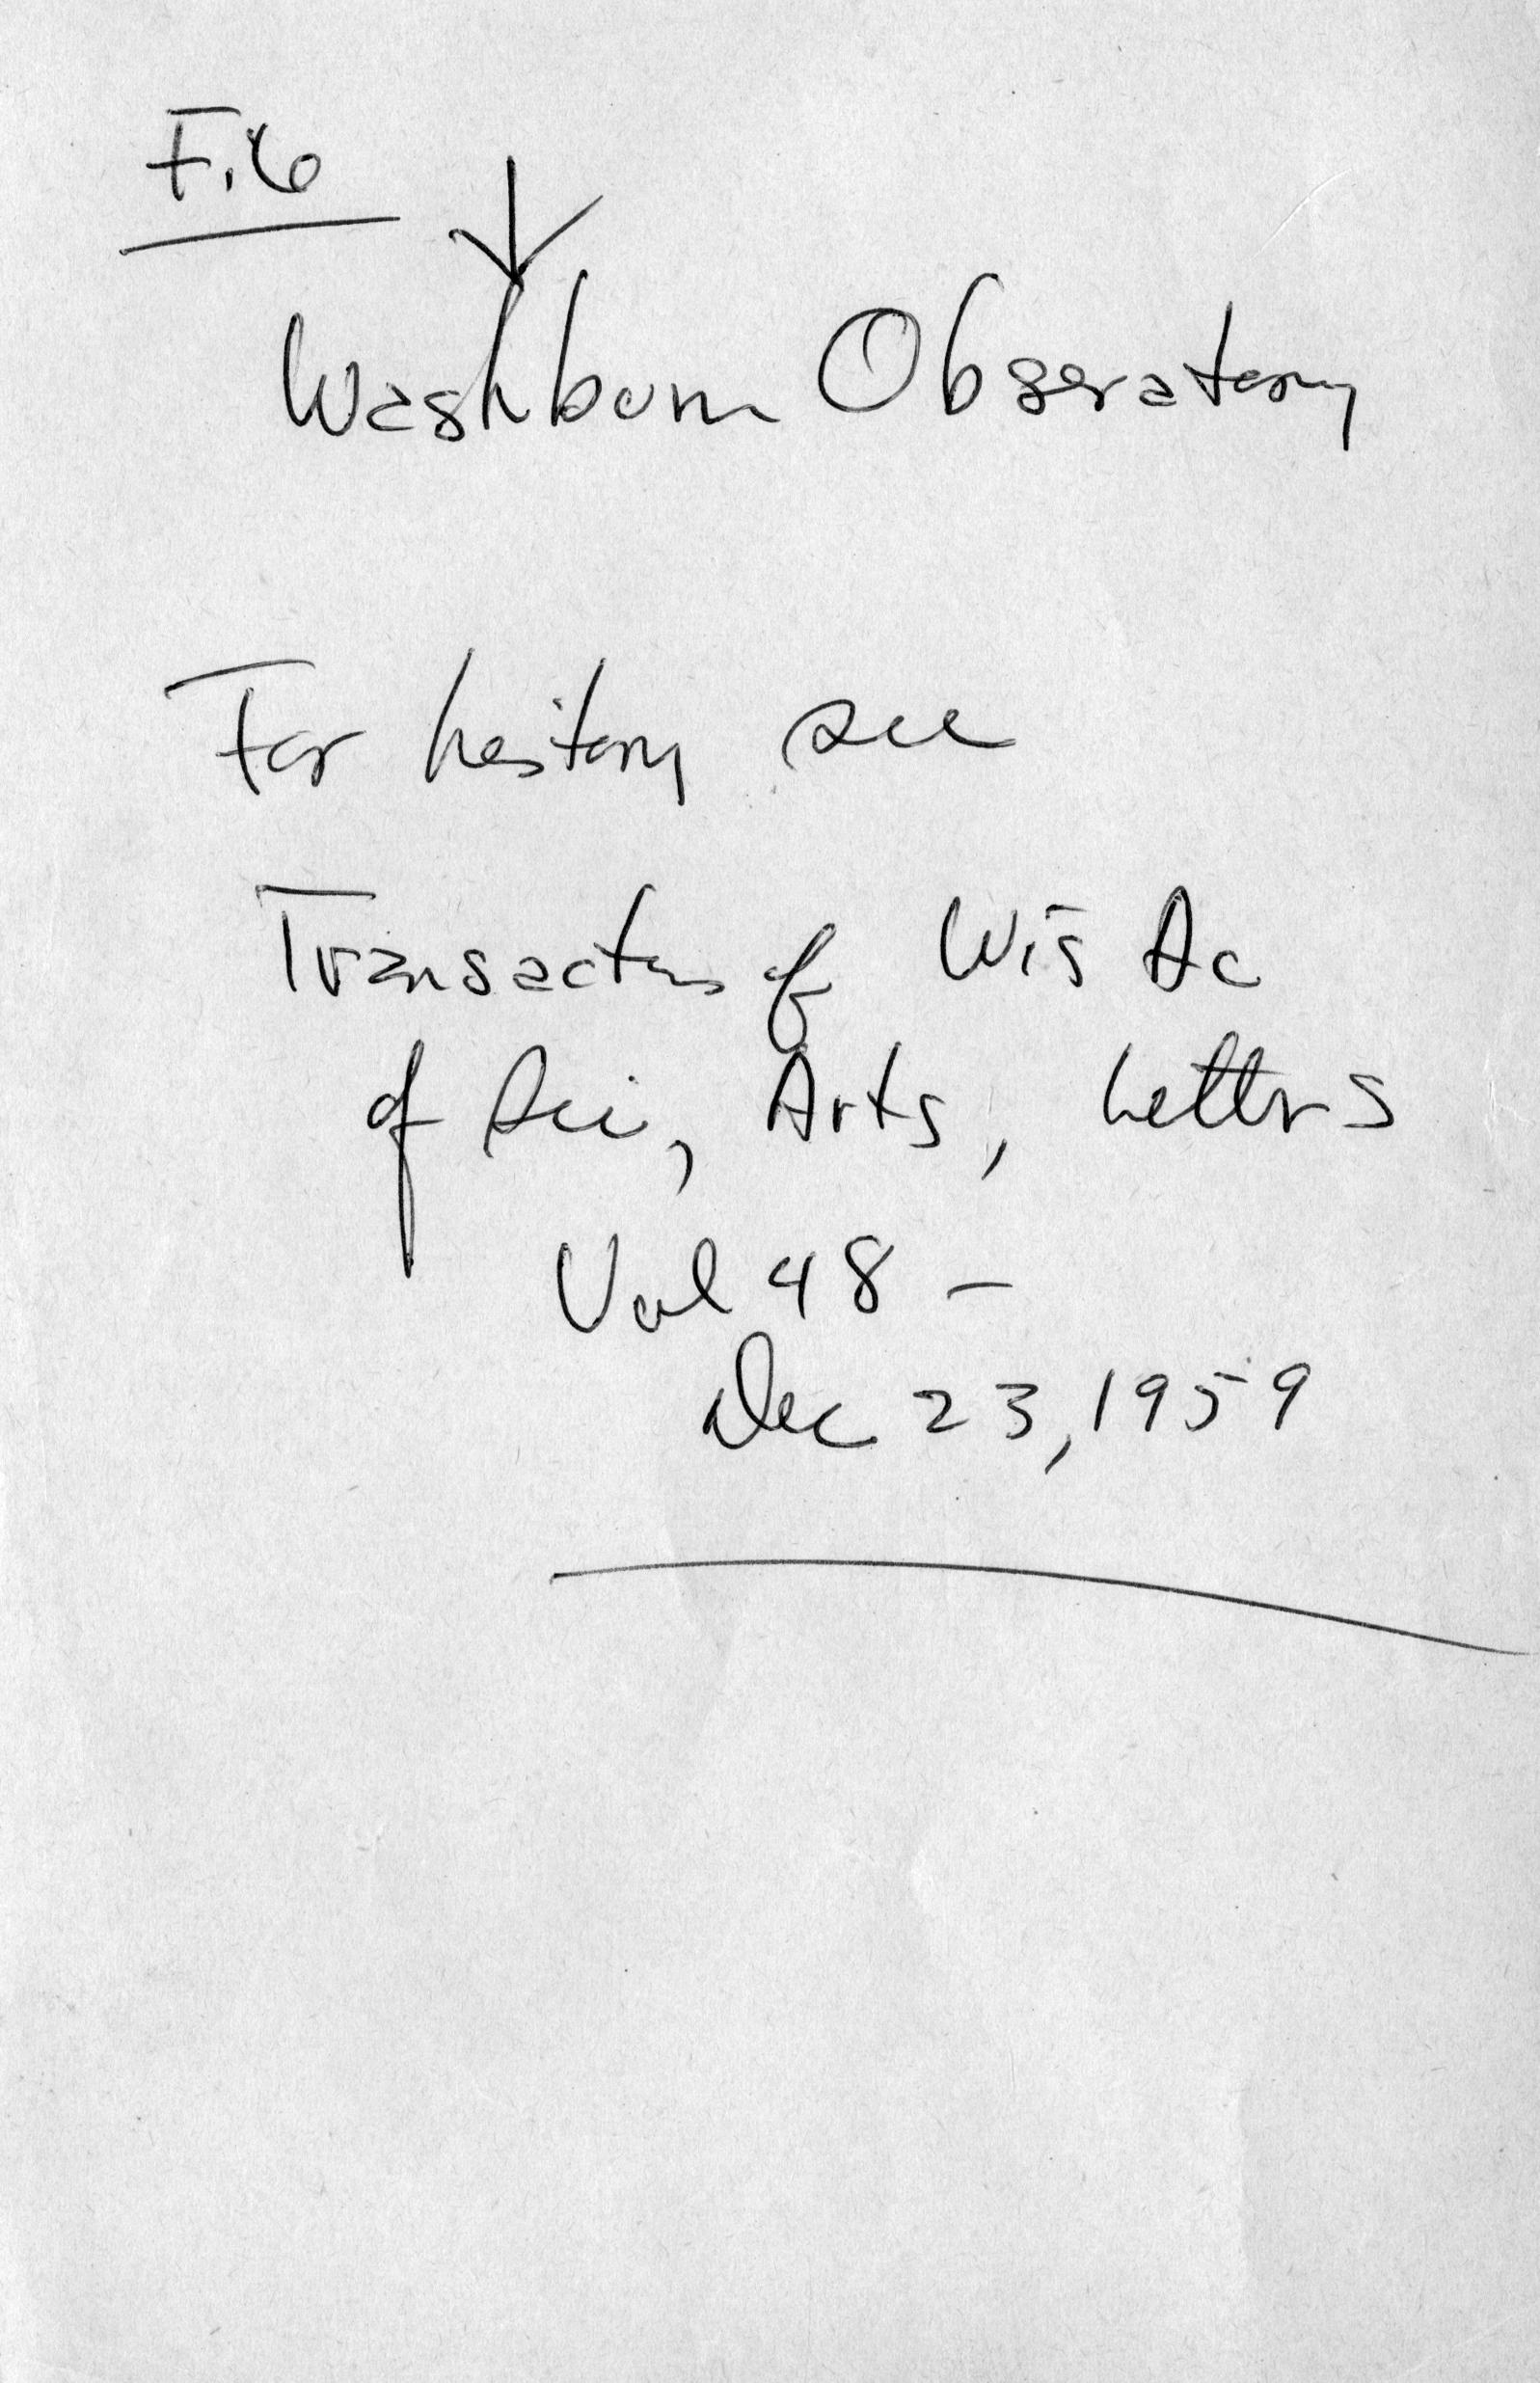 File
Washburn Observatory
For history see
Transactions of Wis Ac
of Sci, Arts, Letters
Vol 48 -
Dec 23, 1959